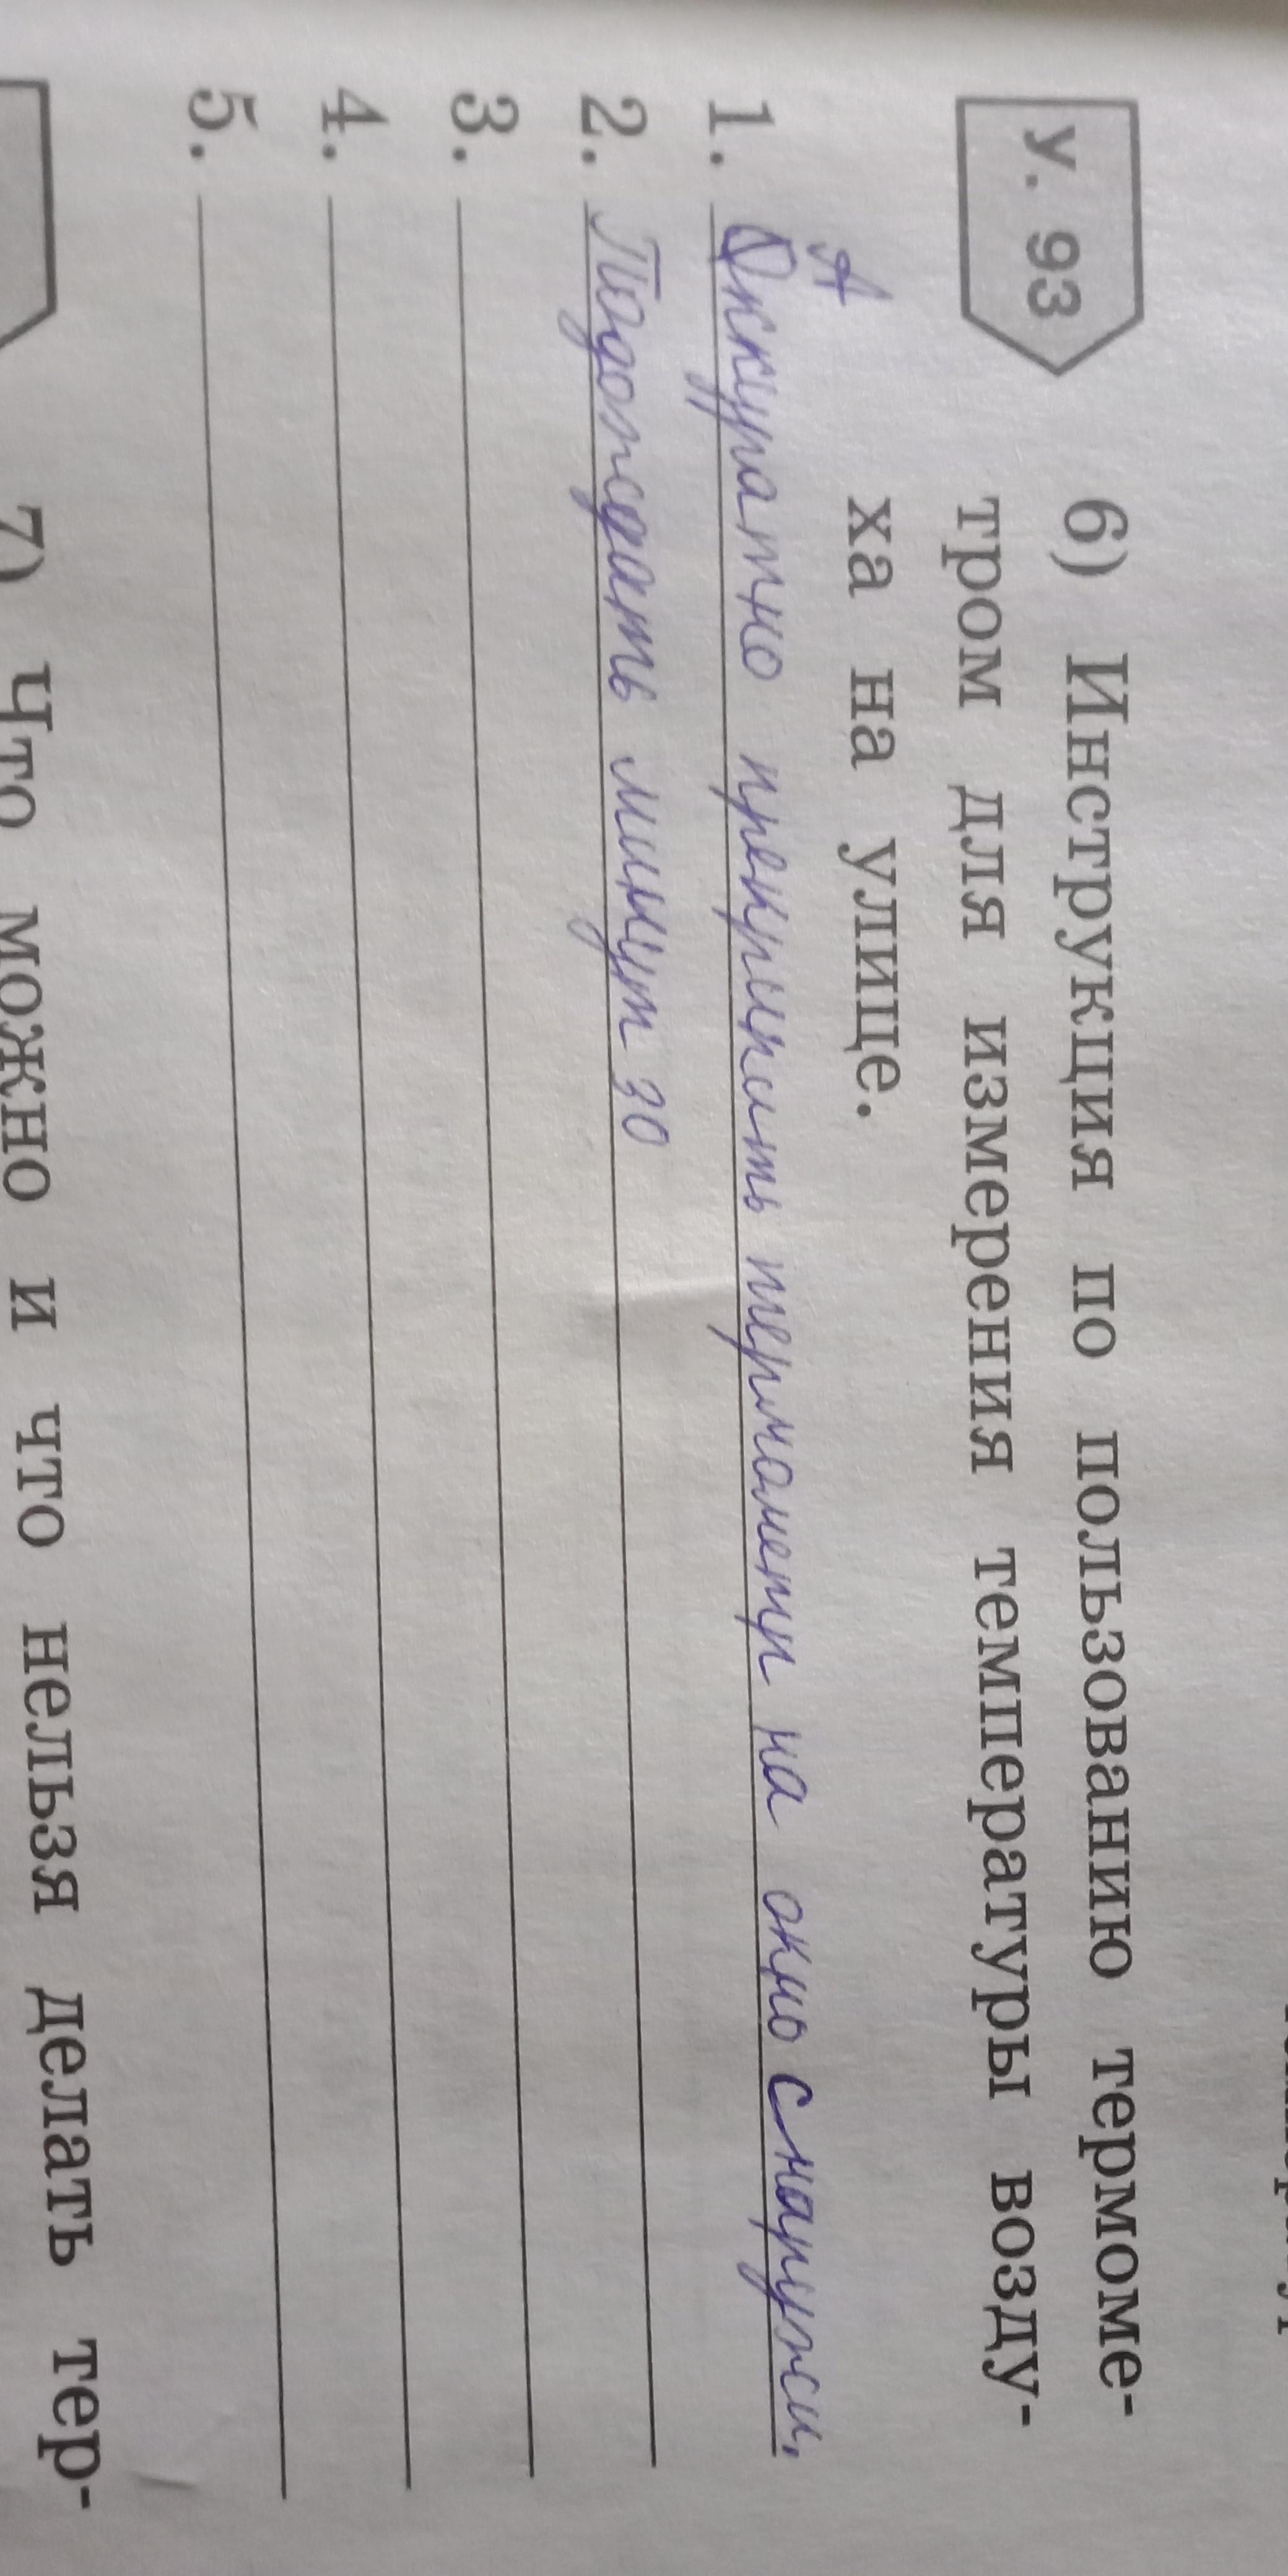 У. 93
6) Инструкция по пользованию термоме-
тром для измерения температуры возду-
ха на улице.
А
1. Оккуратно прекрипить термометр на окно снаружи.
2. Подождать минут 30
3.
4.
5.
7) Что можно и что нельзя делать тер-